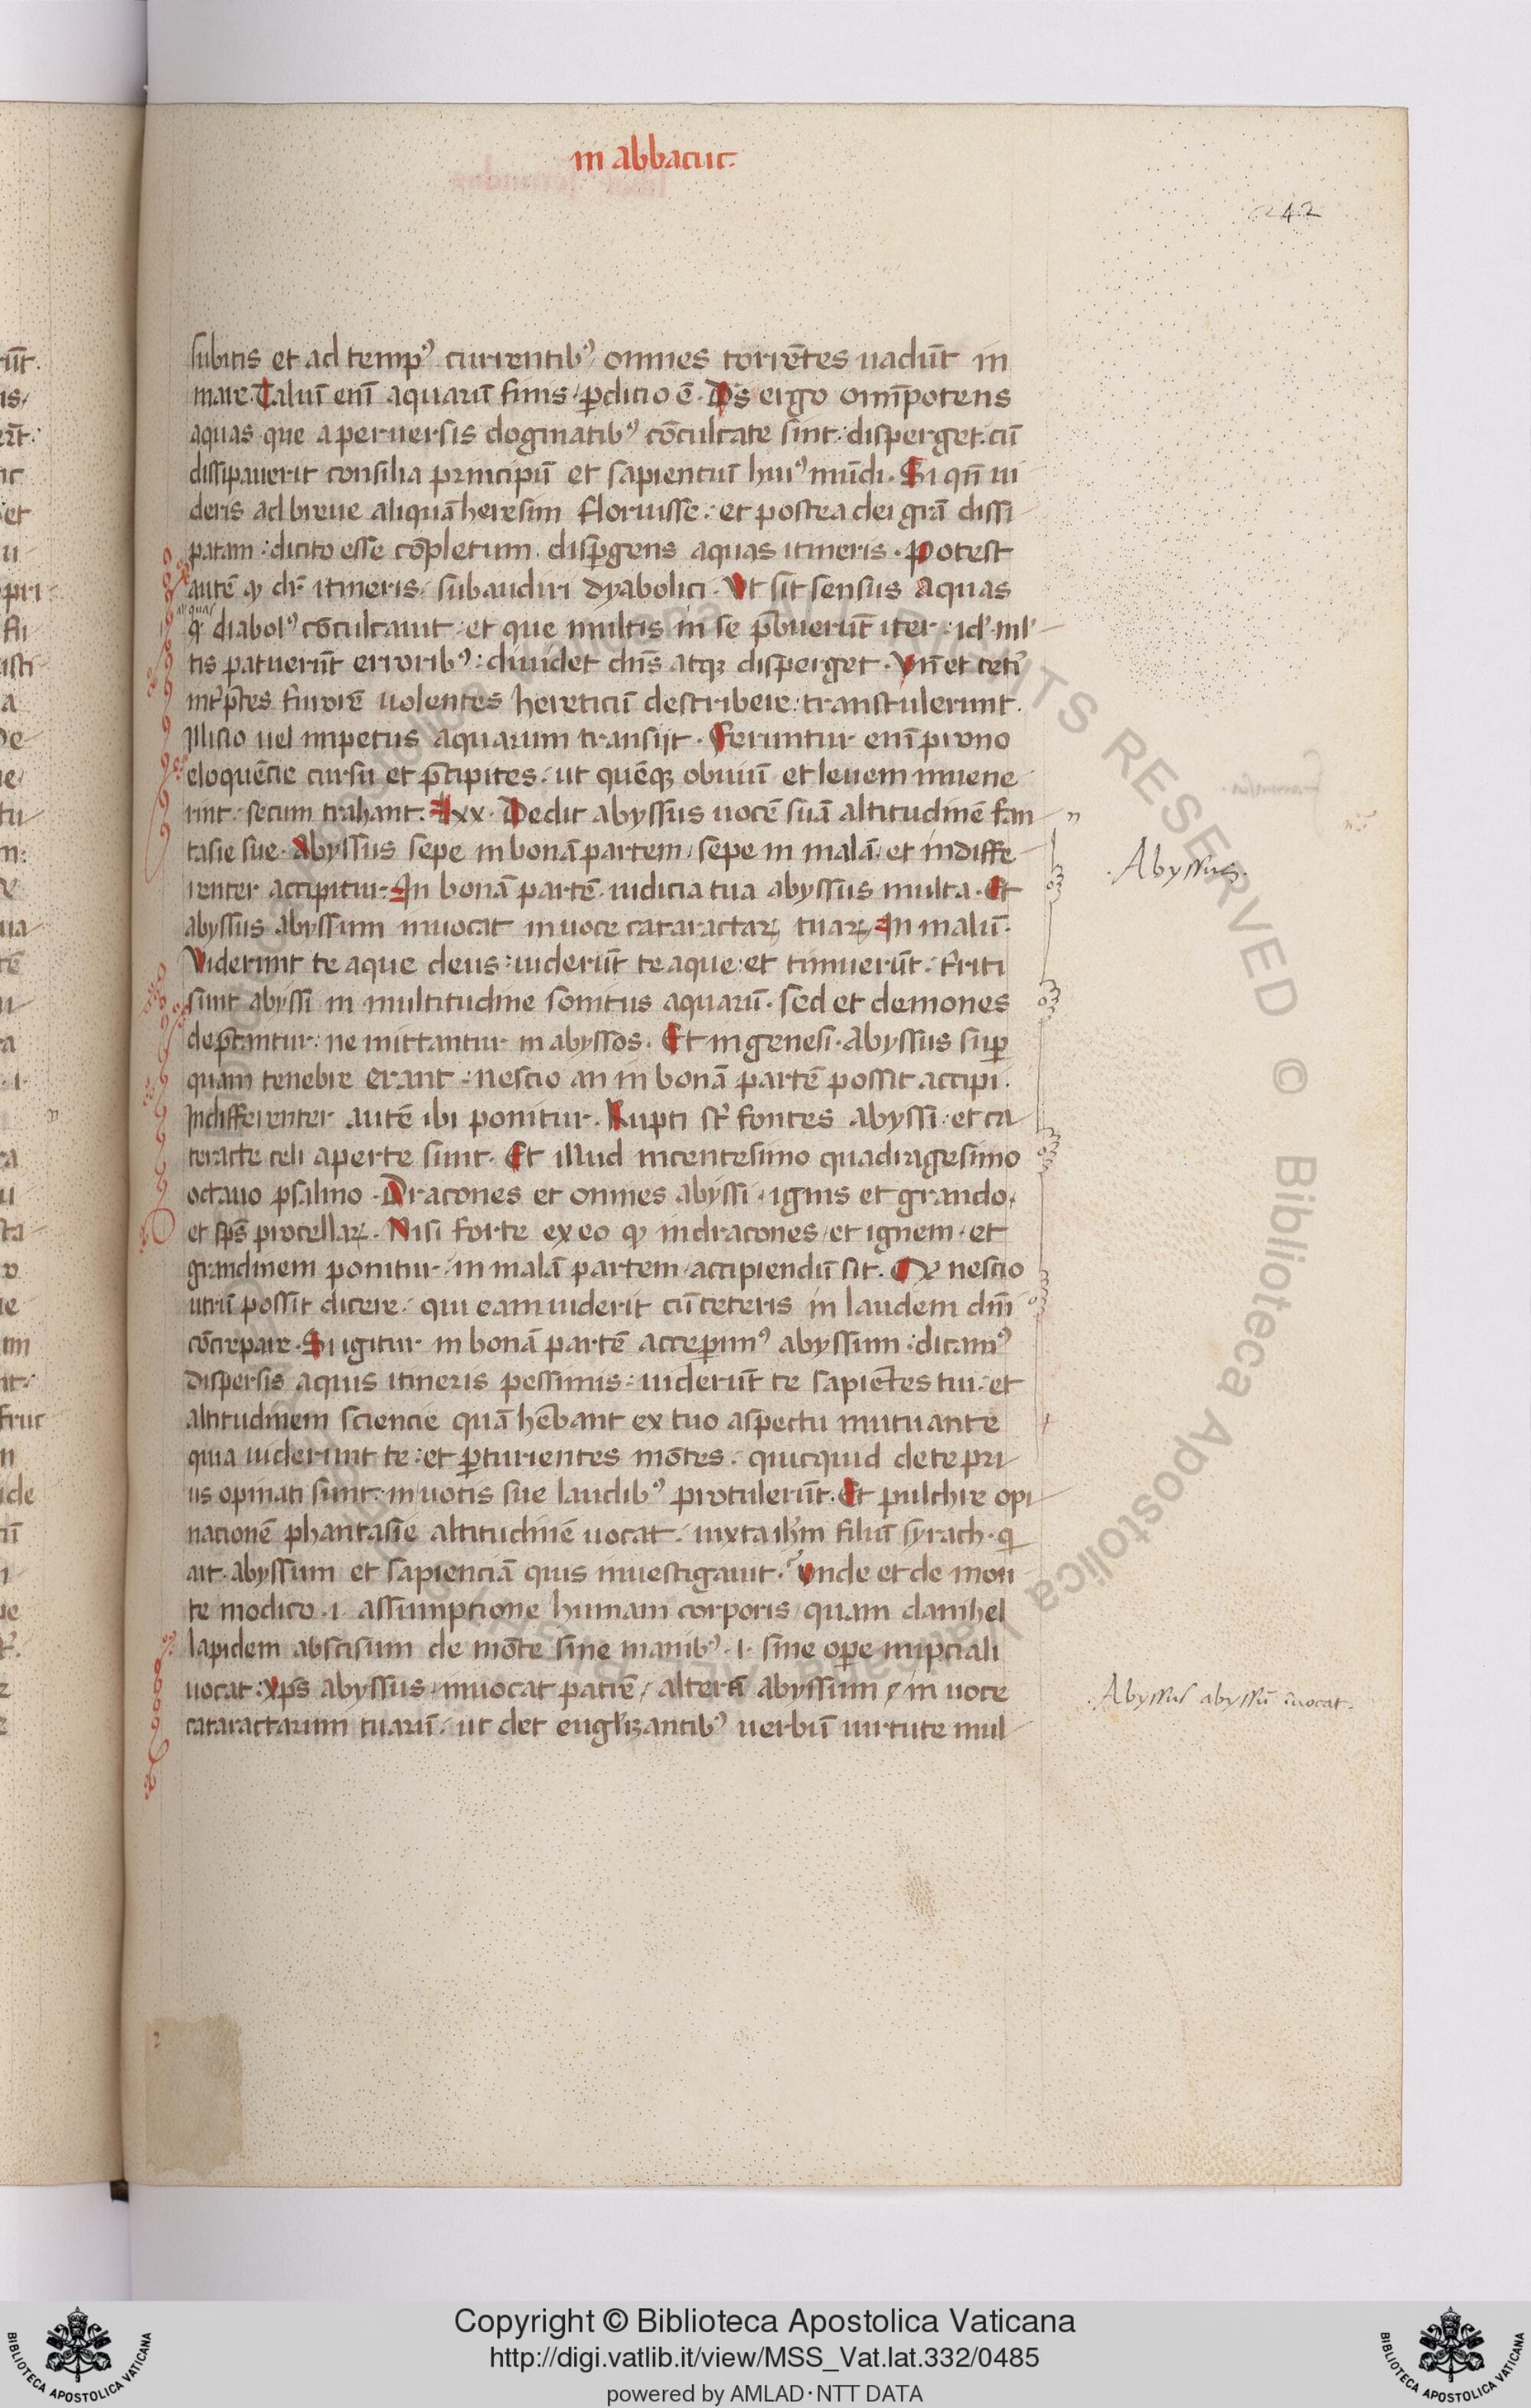 in abbacuc.
242
subitis et ad temp⁹ currentib⁹ omnes torrẽtes uadũt in
mare. Taliũ enĩ aquarũ finis p̱ditio ẽ. D̃s ergo omĩpotens
aquas que a peruersis dogmatib⁹ cõculcate sint: disperget. cũ
dissipauerit consilia principũ et sapientiũ hui⁹ mũdi. Si qñ ui
deris ad breue aliquã heresim floruisse: et postea dei grã dissi
patam: dicito esse cõpletum. disp̱gens aquas itineris. Potest
autẽ ꝙ dr̃ itineris, subaudiri dyabolici. Ut sit sensus Aquas
q̃ diabol⁹ cõculcauit, et que multis in se p̃buerũt iter: id ml'
tis patuerũt errorib⁹: diuidet dñs atqꝫ disperget. Vñ et ceti
int̃p̃tes furorẽ uolentes hereticũ describere: transtulerunt.
Illisio uel impetus aquarum transijt. Feruntur enĩ prono
eloquẽcie cursu et p̃cipites: ut quẽqꝫ obuiũ et leuem inuene
rint: secum trahant. Lxx. Dedit abyssus uocẽ suã altitudinẽ fan
tasie sue. Abyssus sepe in bonã partem, sepe in malã, et indiffe
renter accipitur. In bonã partẽ. iudicia tua abyssus multa. Et
abyssus abyssum inuocat in uoce cataractaꝝ tuaꝝ In malũ.
Viderunt te aque deus: uiderũt te aque: et timuerũt. triti
sunt abyssi in multitudine sonitus aquarũ. sed et demones
dep̃cantur: ne mittantur in abyssos. Et in genesi. Abyssus sup̱
quam tenebre erant: nescio an in bonã partẽ possit accipi.
Indifferenter autẽ ibi ponitur. Rupti st̃ fontes abyssi: et ca
teracte celi aperte sunt. Et illud in centesimo quadragesimo
octauo psalmo. Dracones et omnes abyssi, ignis et grando,
et sp̃s procellaꝝ. Nisi forte ex eo ꝙ in dracones, et ignem, et
grandinem ponitur, in malã partem, accipiendũ sit. Qd̃ nescio
utrũ possit dicere: qui eam uiderit cũ ceteris in laudem dñi
cõcrepare. Si igitur in bonã partẽ accep̱im⁹ abyssum: dicam⁹
dispersis aquis itineris pessimis: uiderũt te sapiẽtes tui: et
altitudinem sciencie quã hẽbant ex tuo aspectu mutuante
quia uiderunt te: et p̱turientes mõtes: quicquid de te pri
us opinati sunt: in uocis sue laudib⁹ protulerũt. Et pulchre opi
nationẽ phantasie altitudinẽ uocat. iuxta ih̃m filiũ syrach. q̃
ait. abyssum et sapienciã quis inuestigauit. Vnde et de mon
te modico .i. assumptione humani corporis, quam danihel
lapidem abscisum de mõte sine manib⁹ .i. sine op̱e nupciali
uocat: xp̃s abyssus, inuocat patrẽ, alterã abyssum, in uoce
cataractarum tuarũ. ut det eugl'izantib⁹ uerbũ uirtute mul
Abyssus.
Abyssus abyssũ ĩuocat.
Copyright © Biblioteca Apostolica Vaticana
http://digi.vatlib.it/view/MSS_Vat.lat.332/0485
powered by AMLAD·NTT DATA